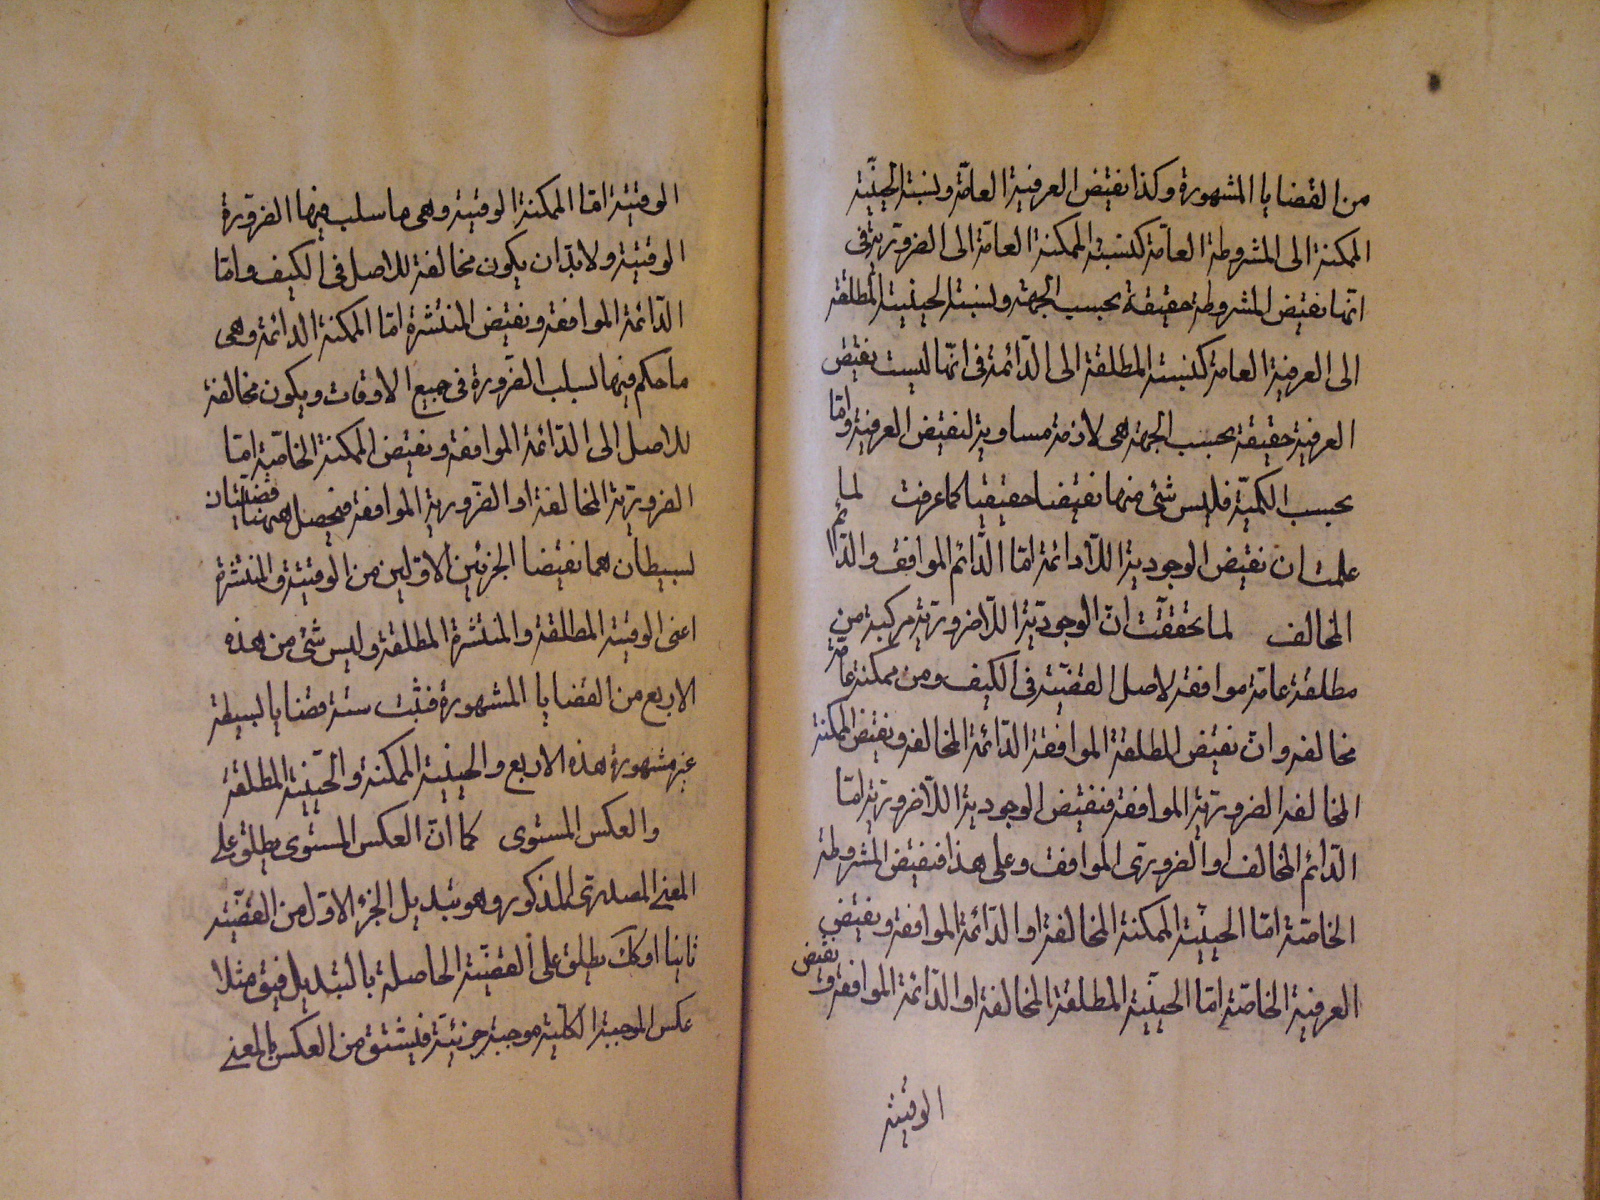 من القضايا المشهورة وكذا نقيض العرفية العامة ونسبة الحينية
الممكنة الى المشروطة العامة كنسبة الممكنة العامة الى الضرورية في
انها نقيض المشروطة حقيقة بحسب الجهة ونسبة الحينية المطلقة
الى العرفية العامة كنسبة المطلقة الى الدائمة في انها ليست نقيض
العرفية حقيقة بحسب الجهة هى لازمة مساوية لنقيض العرفية واما
بحسب الكمية فليس شئ منها نقيضا حقيقيا كما عرفت لما
علمت ان نقيض الوجودية اللادائمة امّا الدّائم الموافق والدائم
المخالف لما تحققت انّ الوجوديّة اللاضروريّة مركبة من
مطلقة عامّة موافقة لاصل القضيّة فى الكيف ومن ممكنة عامّة
مخالفة وانّ نقيض المطلقة الموافقة الدّائمة المخالفة ونقيض الممكنة
المخالفة الضروريّة الموافقة فنقيض الوجودية اللاضروريّة امّا
الدّائم المخالف او الضرورى الموافق وعلى هذا فنقيض المشروطة
الخاصّة امّا الحينيّة الممكنة المخالفة او الدّائمة الموافقة ونقيض
العرفية الخاصّة امّا الحينيّة المطلقة المخالفة او الدّائمة الموافقة ونقيض
الوقتية
الوقتيّة امّا الممكنة الوقتية وهى ما سلب فيها الضرورة
الوقتيّة ولابدّ ان يكون مخالفة للاصل فى الكيف وامّا
الدّائمة الموافقة ونقيض المنتشرة امّا الممكنة الدائمة وهى
ما حكم فيها لسلب الضّرورة فى جميع الاوقات ويكون مخالفة
للاصل الى الدّائمة الموافقة ونقيض الممكنة الخاصّة امّا
الضروريّة المخالفة او الضّرورية الموافقة فيحصل ههنا قضيّتان
بسيطان هما نقيضا الجزئين الاوّلين من الوقتيّة والمنتشرة
اعنى الوقتية المطلقة والمنتشرة المطلقة وليس شئ من هذه
الاربع من القضايا المشهورة فثبت ستة قضايا بسيطة
غير مشهورة هذه الاربع والحينية الممكنة والحينيّة المطلقة
والعكس المستوى كما انّ العكس المستوى يطلق على
المعنى المصدرى المذكور وهو تبديل الجزء الاوّل من القضيّة
ثانيا او كك يطلق على القضيّة الحاصلة بالتبديل فيق مثلا
عكس الموجبة الكلية موجبة جزئيّة فيشتق من العكس بالمعنى